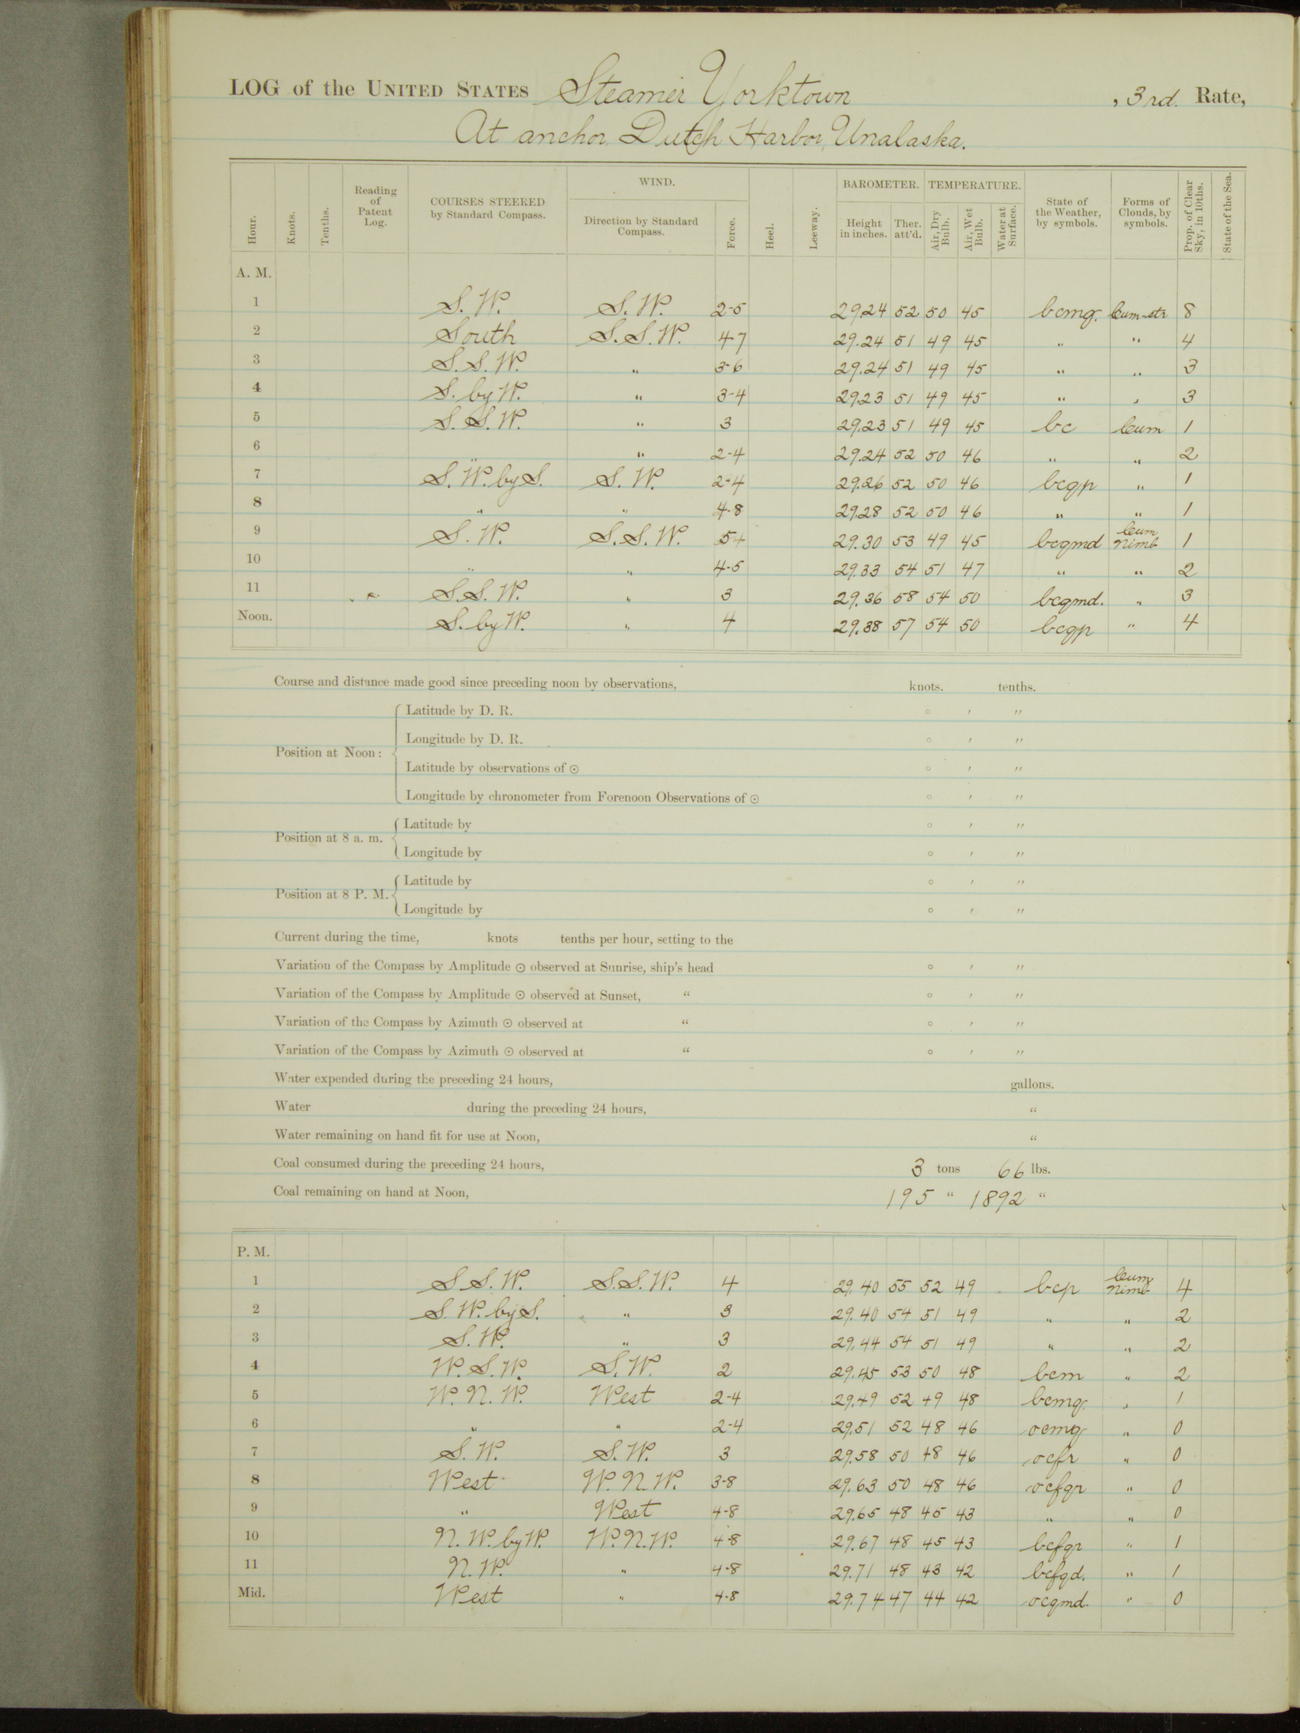 LOG of the UNITED STATES Steamer Yorktown , 3rd. Rate,
At anchor Dutch Harbor, Unalaska.
Hour. Knots. Tenths. Reading of Patent Log. COURSES STEERED by Standard Compass. WIND. Direction by Standard Compass. Force. Heel. Leeway. BAROMETER. Height in inches. Ther. att'd. TEMPERATURE. Air, Dry Bulb. Air, Wet Bulb. Water at Surface. State of the Weather, by symbols. Forms of Clouds, by symbols. Prop. of Clear Sky, in 10ths. State of the Sea.
A. M.
1 S. W. S. W. 2-5 29.24 52 50 45 bcmq. Cum-str 8
2 South S. S. W. 4-7 29.24 51 49 45 " " 4
3 S. S. W. " 3-6 29.24 51 49 45 " " 3
4 S. by W. " 3-4 29.23 51 49 45 " " 3
5 S. S. W. " 3 29.23 51 49 45 bc Cum 1
6 " " 2-4 29.24 52 50 46 " " 2
7 S. W. by S. S. W. 2-4 29.26 52 50 46 bcqp " 1
8 " " 4-8 29.28 52 50 46 " " 1
9 S. W. S. S. W. 5+ 29.30 53 49 45 bcqmd Cum Nimb 1
10 " " 4-5 29.33 54 51 47 " " 2
11 S. S. W. " 3 29.36 58 54 50 bcqmd. " 3
Noon. S. by W. " 4 29.38 57 54 50 bcqp " 4
Course and distance made good since preceding noon by observations, knots. tenths.
Position at Noon: Latitude by D. R. ° ′ ″
Longitude by D. R. ° ′ ″
Latitude by observations of ⊙ ° ′ ″
Longitude by chronometer from Forenoon Observations of ⊙ ° ′ ″
Position at 8 a. m. Latitude by ° ′ ″
Longitude by ° ′ ″
Position at 8 P. M. Latitude by ° ′ ″
Longitude by ° ′ ″
Current during the time, knots tenths per hour, setting to the
Variation of the Compass by Amplitude ⊙ observed at Sunrise, ship's head ° ′ ″
Variation of the Compass by Amplitude ⊙ observed at Sunset, " ° ′ ″
Variation of the Compass by Azimuth ⊙ observed at " ° ′ ″
Variation of the Compass by Azimuth ⊙ observed at " ° ′ ″
Water expended during the preceding 24 hours, gallons.
Water during the preceding 24 hours, "
Water remaining on hand fit for use at Noon, "
Coal consumed during the preceding 24 hours, 3 tons 66 lbs.
Coal remaining on hand at Noon, 195 " 1892 "
P. M.
1 S. S. W. S. S. W. 4 29.40 55 52 49 bcp Cum Nimb 4
2 S. W. by S. " 3 29.40 54 51 49 " " 2
3 S. W. " 3 29.44 54 51 49 " " 2
4 W. S. W. S. W. 2 29.45 53 50 48 bcm " 2
5 W. N. W. West 2-4 29.49 52 49 48 bcmq. " 1
6 " " 2-4 29.51 52 48 46 ocmq " 0
7 S. W. S. W. 3 29.58 50 48 46 ocfr " 0
8 West W. N. W. 3-8 29.63 50 48 46 ocfqr " 0
9 " West 4-8 29.65 48 45 43 " " 0
10 N. W. by W. W. N. W. 4-8 29.67 48 45 43 bcfqr " 1
11 N. W. " 4-8 29.71 48 43 42 bcfqd. " 1
Mid. West " 4-8 29.74 47 44 42 ocqmd. " 0